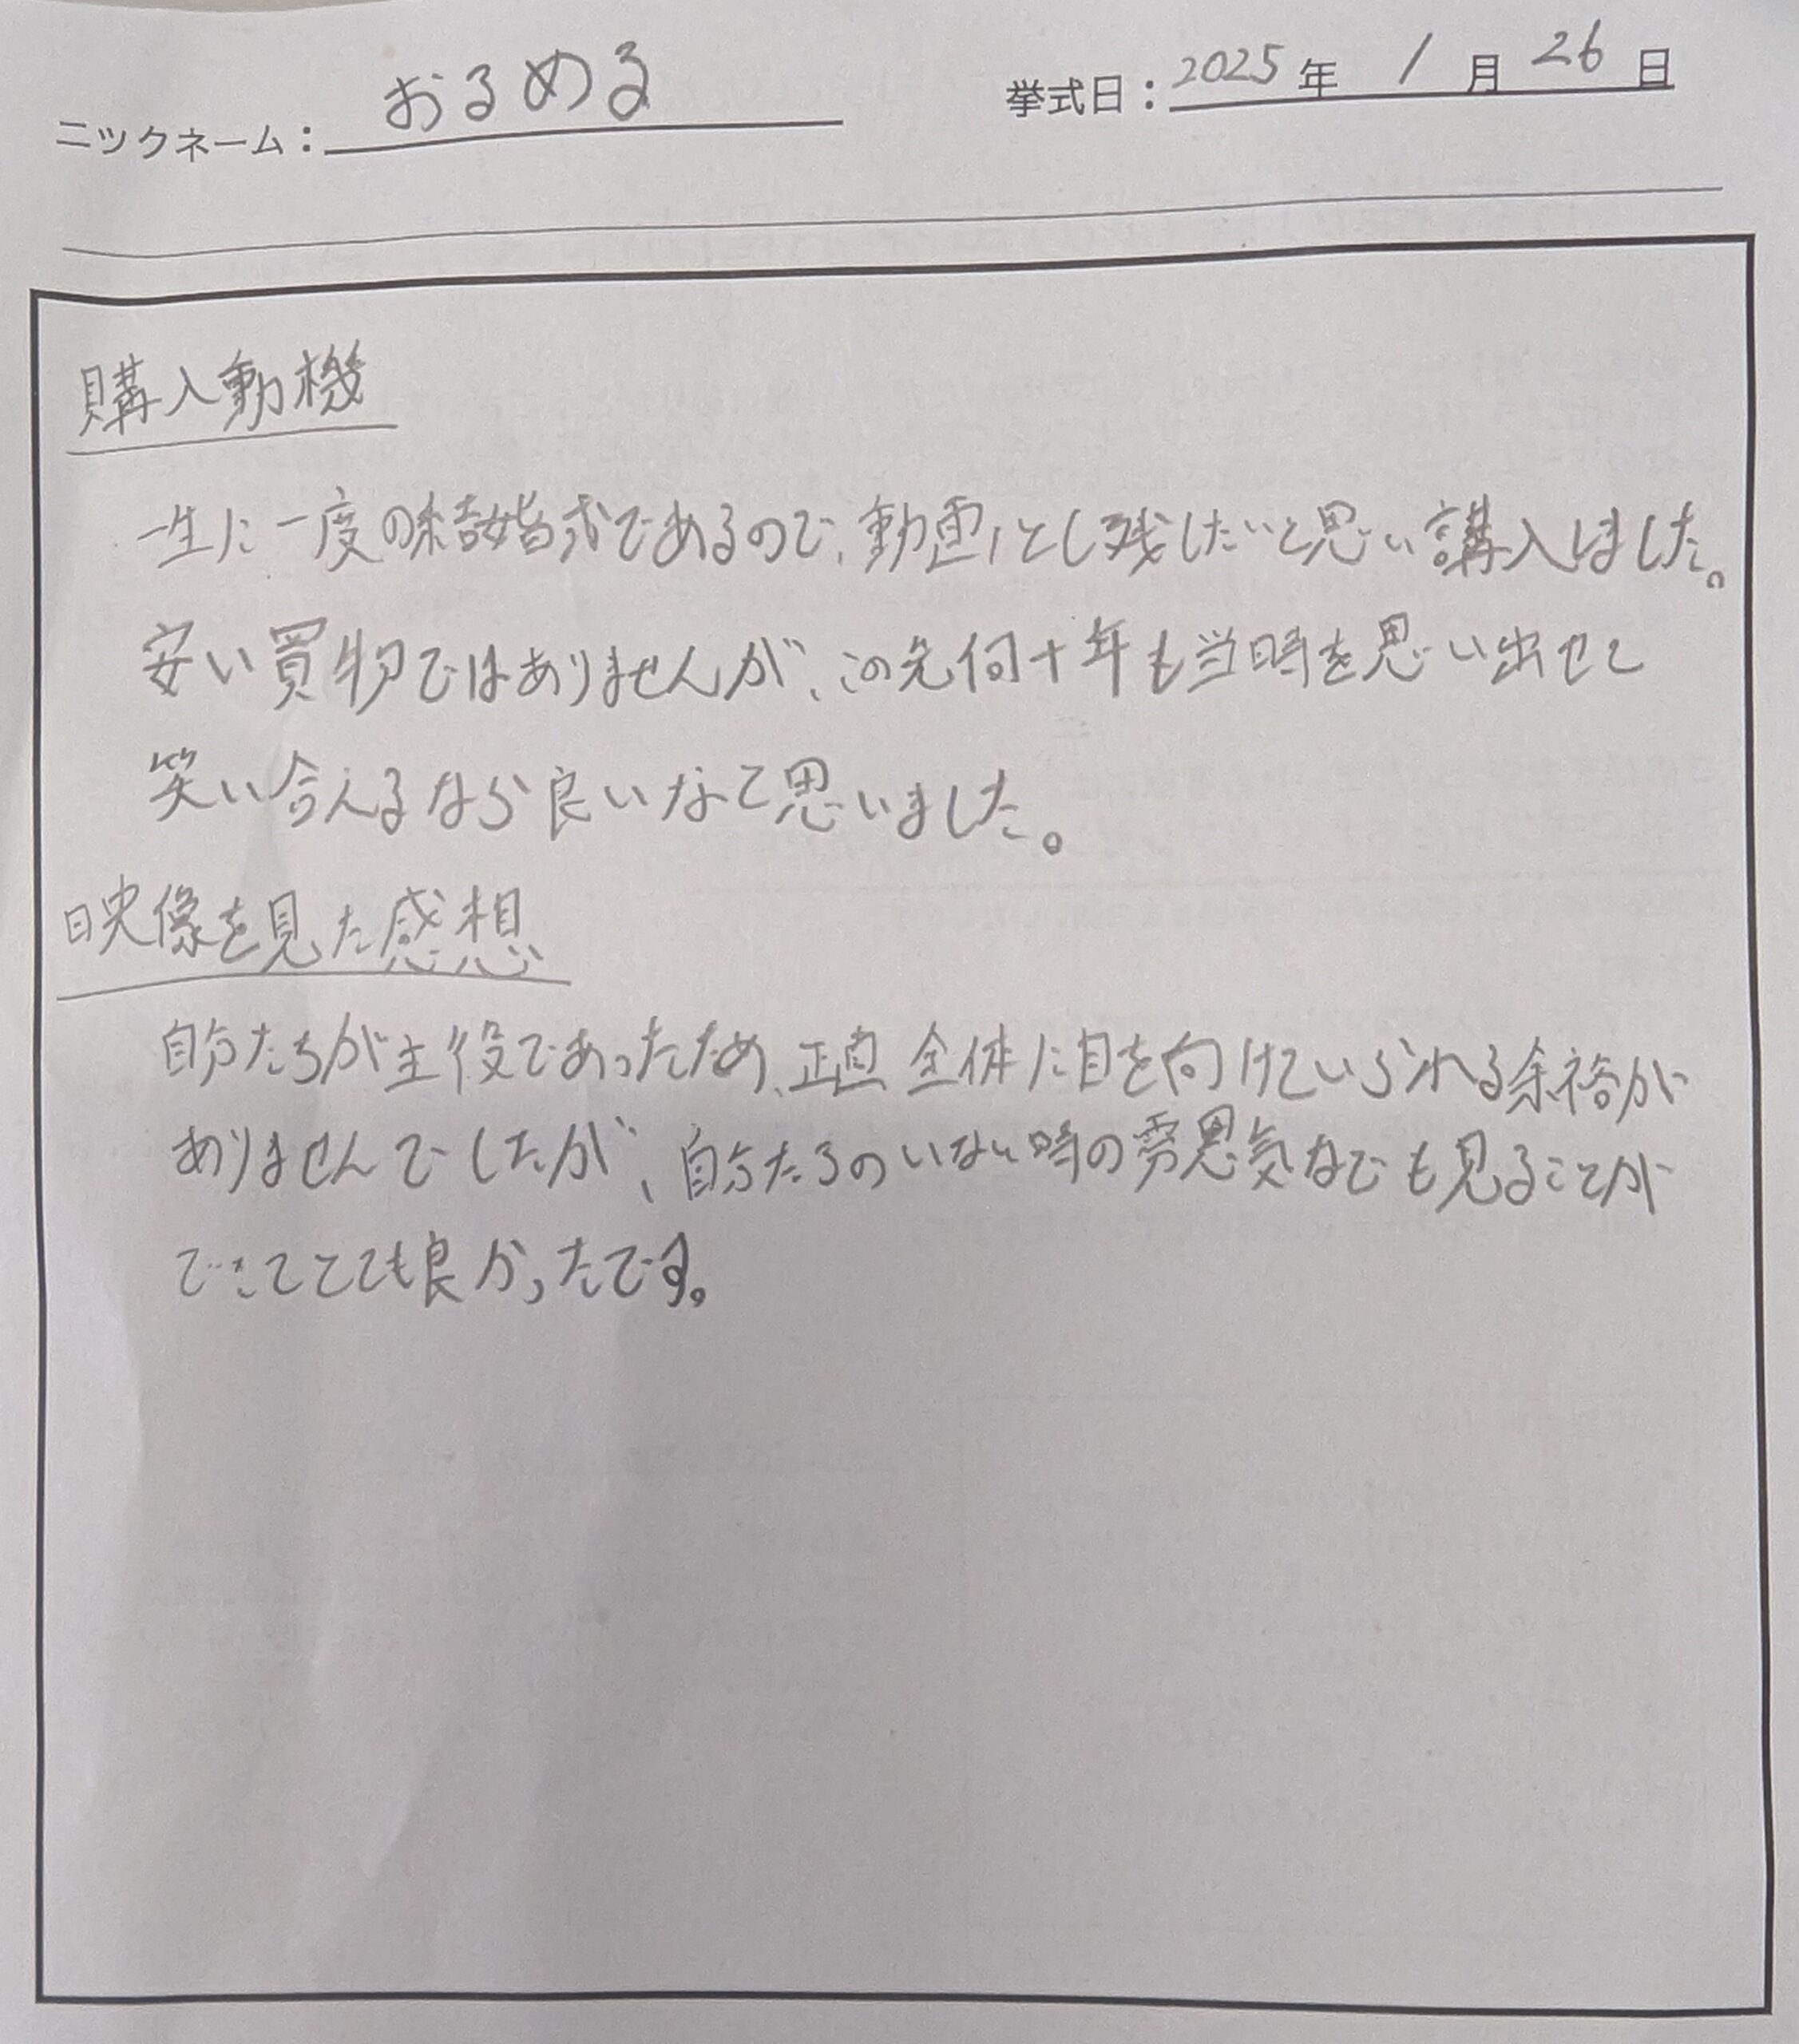 ニックネーム：おるめる
挙式日：2025年 1月 26日
購入動機
一生に一度の結婚式であるので、動画とし残したいと思い講入しました。
安い買物ではありませんが、この先何十年も当時を思い出せて
笑い合えるなら良いなて思いました。
映像を見た感想
自分たちが主役であったため、正直 全体に目を向けていられる余裕が
ありませんでしたが、自分たちのいない時の雰囲気なども見ることが
できてとても良かったです。